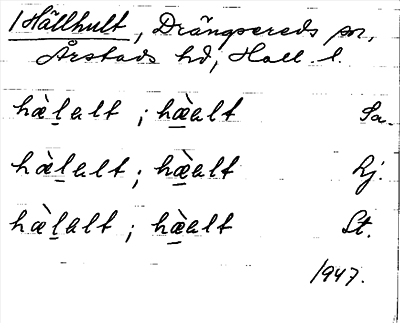 1 Hällhult, Drängsereds sn,
Årstads hd, Hall. l.
hæ̀l̲alt ; hæ̲̀alt Sa.
hæ̀l̲alt ; hæ̲̀alt Lj.
hæ̀l̲alt ; hæ̲̀alt St.
1947.